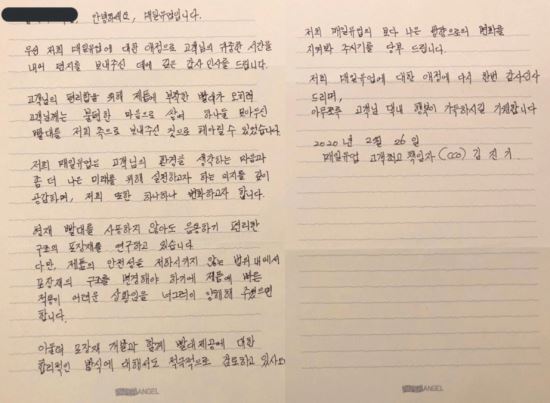 안녕하세요, 매일유업입니다.
우선 저희 매일유업에 대한 애정으로 고객님의 귀중한 시간을
내어 편지를 보내주신 데에 깊은 감사 인사를 드립니다.
고객님의 편리함을 위해 제품에 부착한 빨대가 오히려
고객님께는 불편한 마음으로 쌓여 하나하나 모아두신
빨대를 저희 측으로 보내주신 것으로 헤아릴 수 있었습니다.
저희 매일유업은 고객님의 환경을 생각하는 마음과
좀 더 나은 미래를 위해 실천하고자 하는 의지를 깊이
공감하며, 저희 또한 하나하나 변화하고자 합니다.
현재 빨대를 사용하지 않아도 음용하기 편리한
구조의 포장재를 연구하고 있습니다
다만, 제품의 안전성을 저하시키지 않는 범위 내에서
포장재의 구조를 변경해야 하기에 제품에 빠른
적용이 어려운 상황임을 너그러이 양해해 주셨으면
합니다.
아울러 포장재 개발과 함께 빨대 제공에 대한
합리적인 방식에 대해서도 적극적으로 검토하고 있사오니
저희 매일유업의 보다 나은 방향으로의 변화를
지켜봐 주시기를 당부 드립니다.
저희 매일유업에 대한 애정에 다시 한번 감사인사
드리며,
아무쪼록 고객님 댁내 행복이 가득하시길 기원합니다
2020년 2월 26일
매일유업 고객최고책임자 (CCO) 김진기
ANGEL
ANGEL